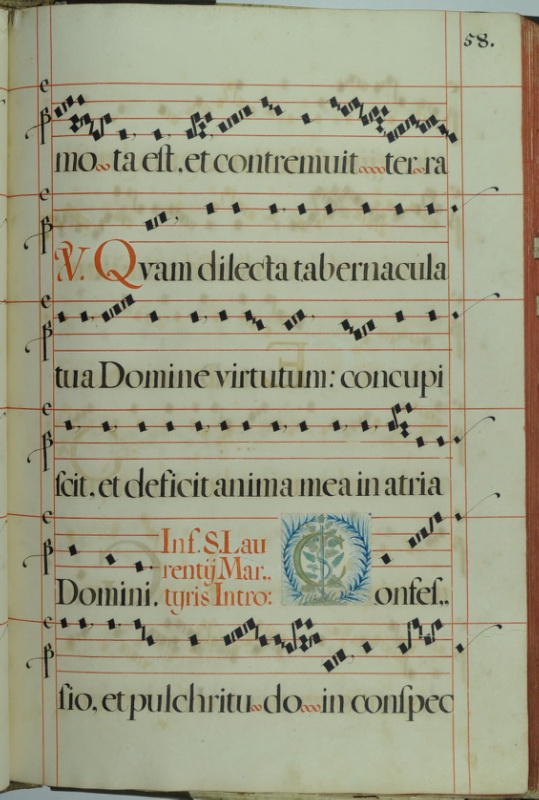 58.
mo ta est, et contremuit ter ra
V. Quam dilecta tabernacula
tua Domine virtutum: concupi
scit, et deficit anima mea in atria
In f. S. Lau
rentij Mar..
Domini. tyris Intro: Confes..
sio, et pulchritu do in conspec